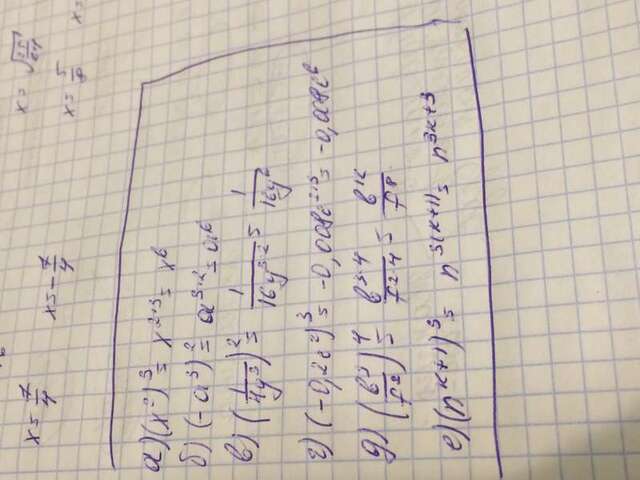 x = 7/4
x = -7/4
x = √(25/64)
x = 5/8
x =
а) (x²)³ = x²·³ = x⁶
б) (-a³)² = a³·² = a⁶
в) (1/4y³)² = 1/16y³·² = 1/16y⁶
г) (-0,2c²)³ = -0,008c²·³ = -0,008c⁶
д) (b³/f²)⁴ = b³·⁴/f²·⁴ = b¹²/f⁸
е) (n^x+1)³ = n^3(x+1) = n^3x+3